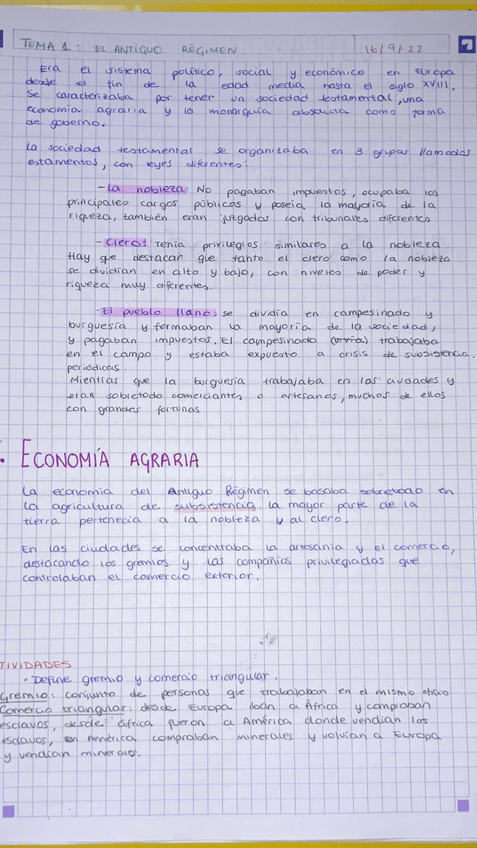 TEMA 1: EL ANTIGUO RÉGIMEN 16/9/22
Era el sistema político, social y económico en Europa
desde el fin de la edad media hasta el siglo XVIII.
Se caracterizaba por tener un sociedad testamental, una
economia agraria y la monarquía absoluta como forma
de gobierno.
La sociedad testamental se organizaba en 3 grupos llamados
estamentos, con leyes diferentes:
- La nobleza: No pagaban impuestos, ocupaba los
principales cargos públicos y poseía la mayoría de la
riqueza, también eran juzgados con tribunales diferentes
- Clero: Tenía privilegios similares a la nobleza.
Hay que destacar que tanto el clero como la nobleza
se dividían en alto y bajo, con niveles de poder y
riqueza muy diferentes.
- El pueblo llano: se dividía en campesinado y
burguesía y formaban la mayoría de la sociedad,
y pagaban impuestos. El campesinado trabajaba
en el campo y estaba expuesto a crisis de subsistencia
periódicas.
Mientras que la burguesía trabajaba en las ciudades y
eran sobretodo comerciantes o artesanos, muchos de ellos
con grandes fortunas
• ECONOMÍA AGRARIA
La economía del Antiguo Régimen se basaba sobretodo en
la agricultura de subsistencia, la mayor parte de la
tierra pertenecía a la nobleza y al clero.
En las ciudades se concentraba la artesanía y el comercio,
destacando los gremios y las compañías privilegiadas que
controlaban el comercio exterior.
TIVIDADES
• Define gremio y comercio triangular.
Gremio: conjunto de personas que trabajaban en el mismo oficio
Comercio triangular: desde Europa iban a África y compraban
esclavos, desde África fueron a América donde vendían los
esclavos, en América compraban minerales y volvían a Europa
y vendían minerales.